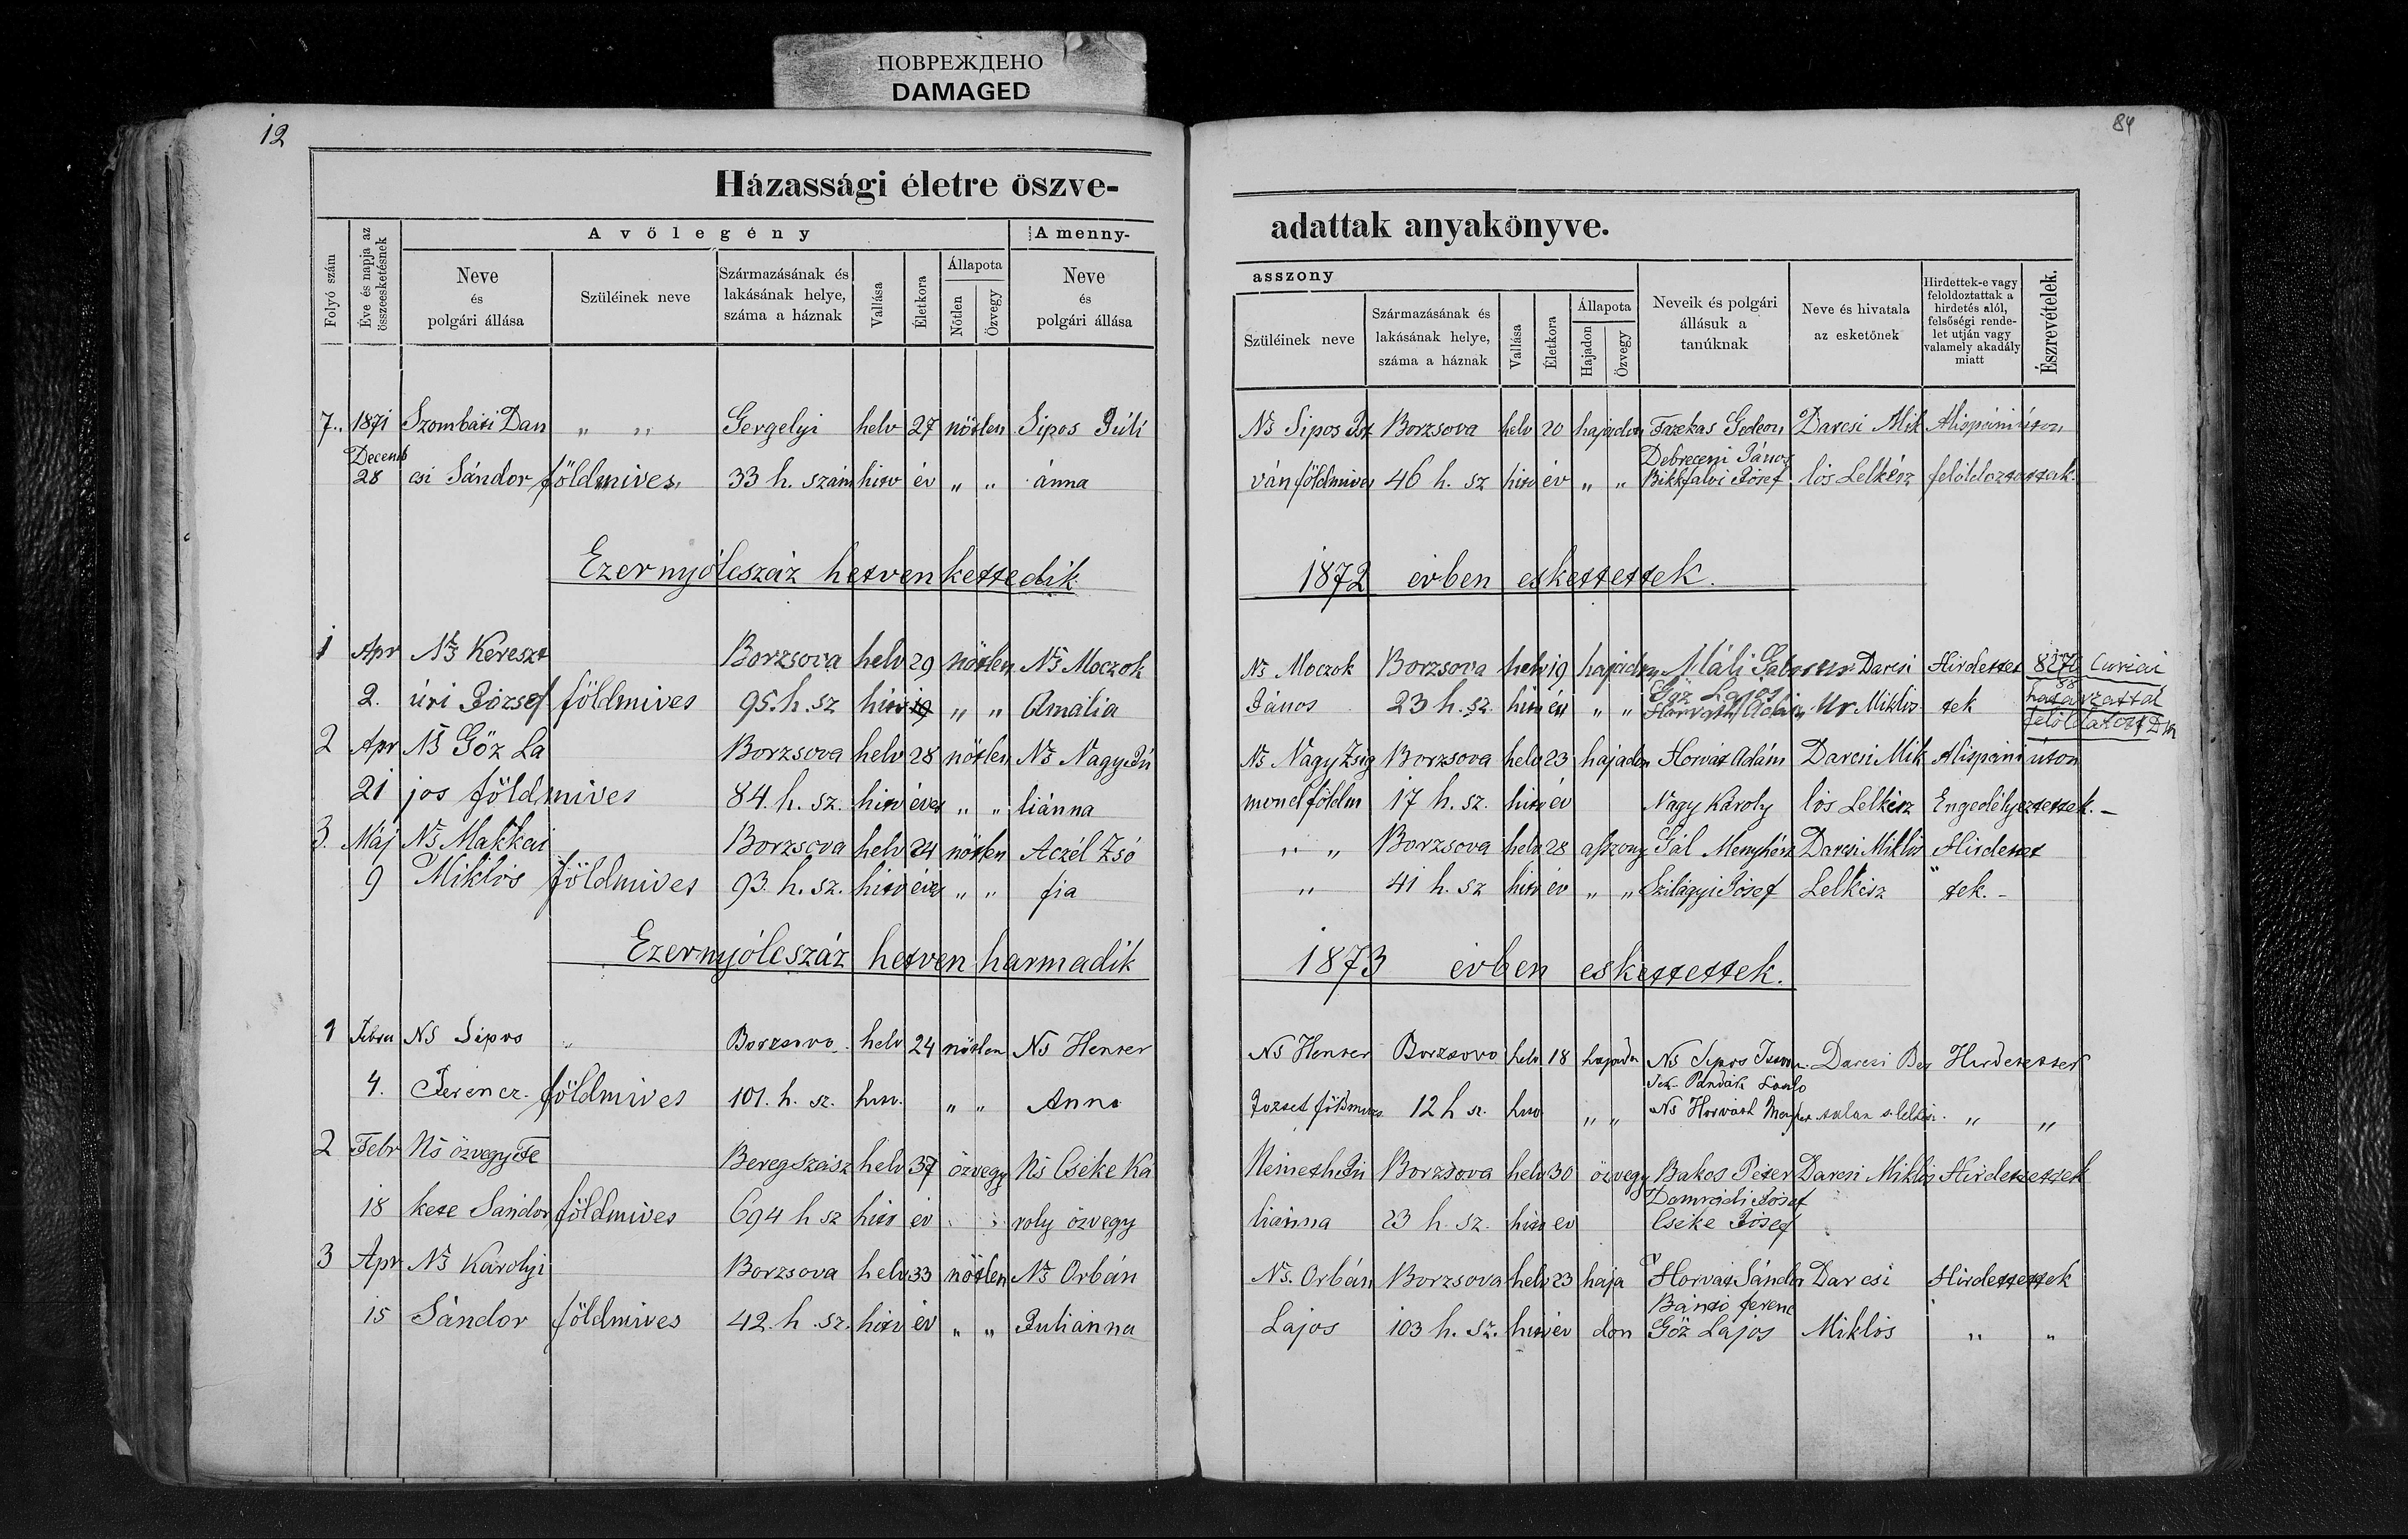 ПОВРЕЖДЕНО
DAMAGED
12
84
Házassági életre öszve-
adattak anyakönyve.
Folyó szám
Éve és napja az összeesketésnek
A vőlegény
Neve és polgári állása
Szüléinek neve
Származásának és lakásának helye, száma a háznak
Vallása
Életkora
Állapota
Nőtlen
Özvegy
A menny-
Neve és polgári állása
asszony
Szüléinek neve
Származásának és lakásának helye, száma a háznak
Vallása
Életkora
Állapota
Hajadon
Özvegy
Neveik és polgári állásuk a tanúknak
Neve és hivatala az esketőnek
Hirdettek-e vagy feloldoztattak a hirdetés alól, felsőségi rendelet utján vagy valamely akadály miatt
Észrevételek.
7.. 1871 Szombati Dan „ „ Gergelyi helv 27 nőtlen Sipos Júli Ns Sipos Ist Borzsova helv 20 hajadon Fazekas Gedeon Darcsi Mik Alispáni úton
Decemb 28 csi Sándor földmives 33 h. szám hitv év „ „ ánna ván földmives 46 h. sz hitv év „ „ Debreceni János Bikkfalvi Jósef lós Lelkész felóldoztattak.
Ezernyólcszáz hetvenkettedik 1872 évben eskettettek.
1 Apr Ns Kereszt Borzsova helv 29 nőtlen Ns Moczok Ns Moczok Borzsova helv 19 hajadon Máli Gábor Darcsi Hirdettet Curiai
2. úri József földmives 95. h. sz hitv „ „ Amália János 23 h. sz. hitv év „ „ Göz Lajos Horváth Ádám Miklós tek határzattal
2 Apr Ns Göz La Borzsova helv 28 nőtlen Ns Nagy Jú Ns Nagy Zsig Borzsova helv 23 hajadon Horvat Adám Darcsi Mik Alispáni úton
21 jos földmives 84. h. sz. hitv éves „ „ liánna mond földm 17 h. sz. hitv év Nagy Károly lós Lelkész Engedélyeztettek. –
3. Máj Ns Makkai Borzsova helv 24 nőtlen Aczél Zsó „ „ Borzsova helv 28 aszony Gál Menyhért Darcsi Miklós Hirdettet
9 Miklós földmives 93. h. sz. hitv éves „ „ fia „ 41 h. sz hitv év „ „ Szilágyi Jósef Lelkész tek. –
Ezernyólcszáz hetven harmadik 1873 évben eskettettek.
1 Febru NS Sipos „ Borzsova helv 24 nőtlen Ns Henter Ns Henter Borzsova helv 18 hajadon Ns Sipos Darcsi Hirdettettek
4. Ferencz földmives 101. h. sz. hitv. „ „ Anna József földmives 12 h sz. hitv „ „ Ns Horváth „ „
2 Febr Ns özvegy Fe Beregszász helv 37 özvegy Ns Cseke Ka Németh Jú Borzsova helv 30 özvegy Bakos Péter Darcsi Miklós Hirdettettek
18 kete Sándor földmives 694 h sz hitv év „ „ roly özvegy liánna 23 h. sz. hitv ev Jósef Cseke Jósef
3 Apr Ns Károlyi Borzsova helv 33 nőtlen Ns Orbán Ns. Orbán Borzsova helv 23 haja Horvát Sándor Darcsi Hirdettettek
15 Sándor földmives 42. h. sz. hitv év „ „ Juliánna Lajos 103 h. sz. hitv év don Bántó ferenc Göz Lajos Miklós „ „